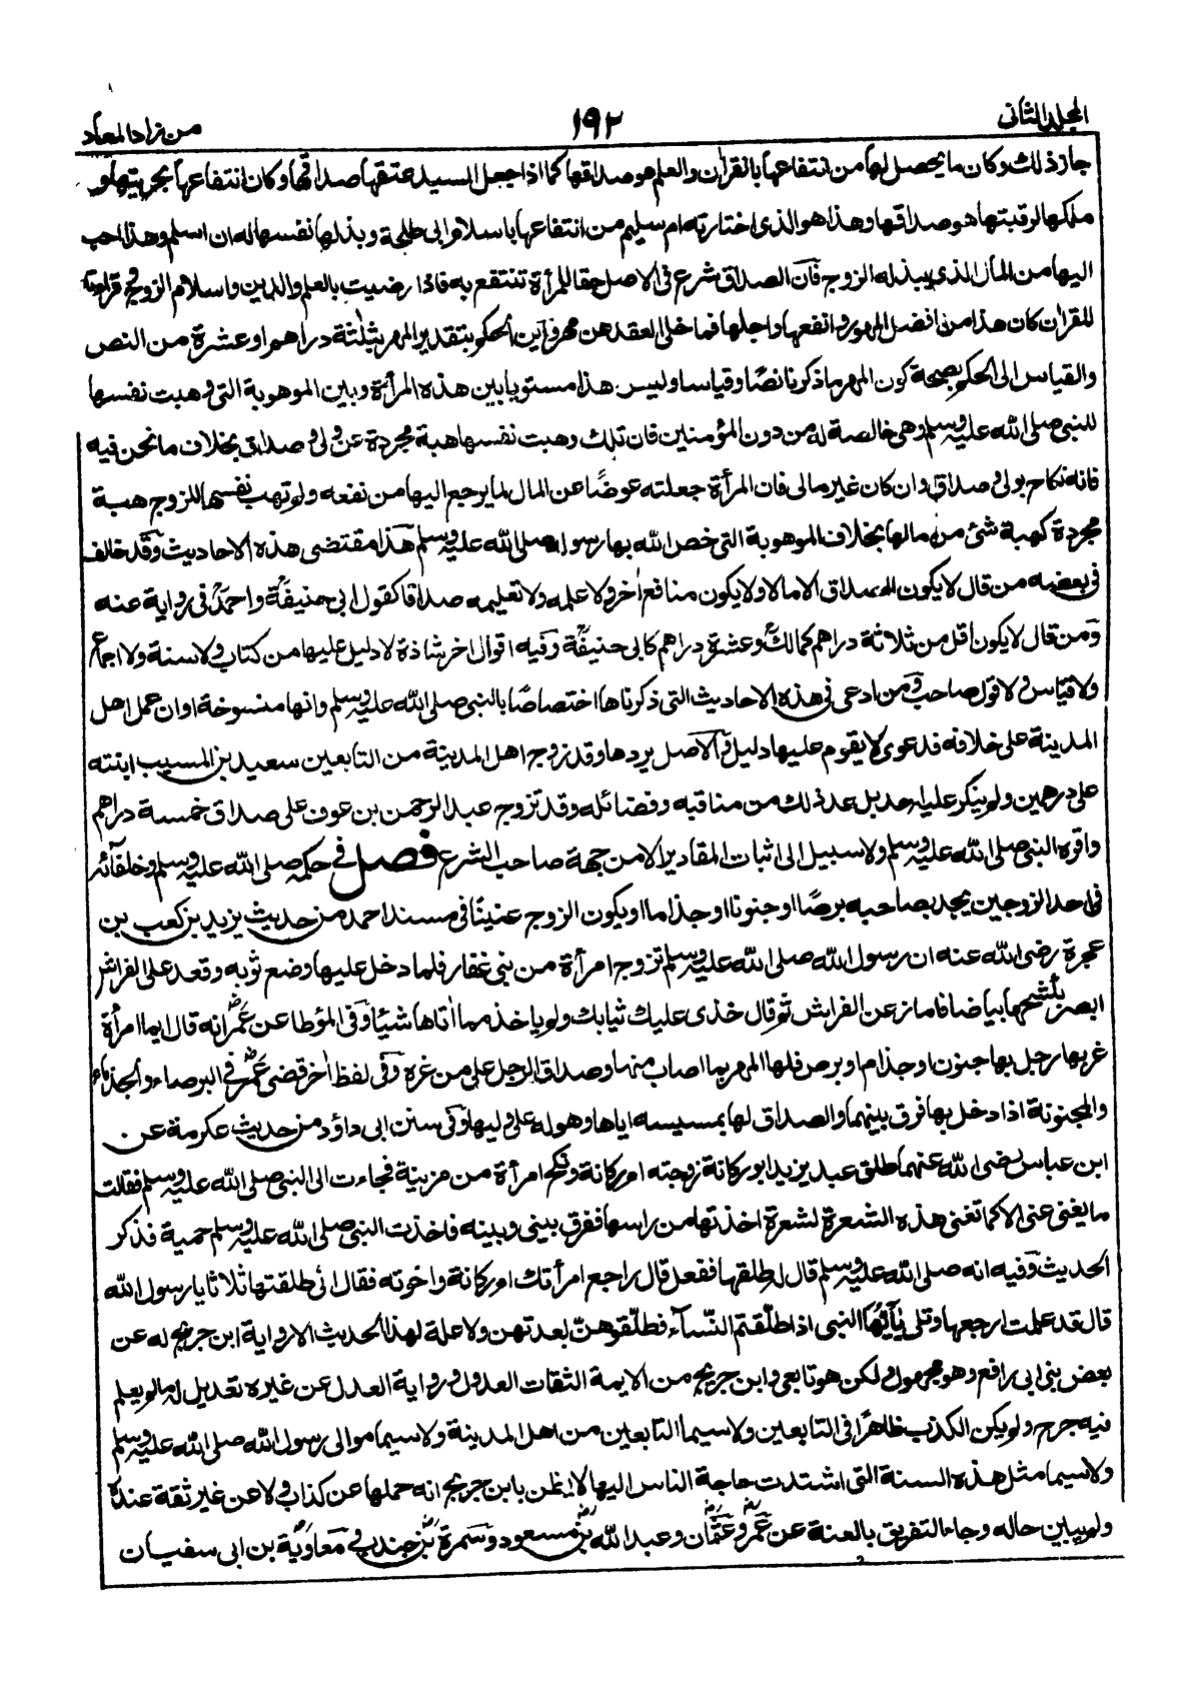 المجلد الثانى ١٩٢ من زاد المعاد
جاز ذلك وكان ما يحصل لها من انتفاعها بالقران والعلم هو صداقها كما اذا جعل السيد عتقها صداقها وكان انتفاعها بحريتها و
ملكها لرقبتها هو صداقها وهذا هو الذى اختارته ام سليم من انتفاعها باسلام ابى طلحة وبذلها نفسها له ان اسلم وهذا احب
اليها من المال الذى يبذله الزوج فان الصداق شرع فى الاصل حقا للمرأة تنتفع به فاذا رضيت بالعلم والدين واسلام الزوج وقراءته
للقران كان هذا من افضل المهور وانفعها واجلها فما خلى العقد عن مهر واين الحكم بتقدير المهر بثلثة دراهم او عشرة من النص
والقياس الى الحكم بصحة كون المهر ما ذكرنا نصًا وقياسا وليس هذا مستويا بين هذه المرأة وبين الموهوبة التى وهبت نفسها
للنبى صلى الله عليه وسلم وهى خالصة له من دون المؤمنين فان تلك وهبت نفسها هبة مجردة عن ولى و صداق بخلاف ما نحن فيه
فانه نكاح بولى و صداق وان كان غير مالى فان المرأة جعلته عوضًا عن المال لما يرجع اليها من نفعه ولم تهب نفسها للزوج هبة
مجردة كهبة شئ من مالها بخلاف الموهوبة التى خص الله بها رسوله صلى الله عليه وسلم هذا مقتضى هذه الاحاديث وقد خالف
فى بعضه من قال لا يكون الصداق الا مالا ولا يكون منافع اخر ولا علمه ولا تعليمه صداقا كقول ابى حنيفة واحمد فى رواية عنه
ومن قال لا يكون اقل من ثلاثة دراهم كمالك وعشرة دراهم كابى حنيفة وفيه اقوال اخر شاذة لا دليل عليها من كتاب ولا سنة ولا اجماع
ولا قياس ولا قول صاحب ومن ادعى فى هذه الاحاديث التى ذكرناها اختصاصًا بالنبى صلى الله عليه وسلم وانها منسوخة او ان عمل اهل
المدينة على خلافه فدعوى لا يقوم عليها دليل والاصل يردها وقد زوج اهل المدينة من التابعين سعيد بن المسيب ابنته
على درهمين ولم ينكر عليه احد بل عد ذلك من مناقبه وفضائله وقد تزوج عبد الرحمن بن عوف على صداق خمسة دراهم
واقره النبى صلى الله عليه وسلم ولا سبيل الى اثبات المقادير الا من جهة صاحب الشرع فصل فى حكمه صلى الله عليه وسلم وخلفائه
فى احد الزوجين يجد بصاحبه برصًا او جنونا او جذاما او يكون الزوج عنينًا فى مسند احمد من حديث يزيد بن كعب بن
عجرة رضى الله عنه ان رسول الله صلى الله عليه وسلم تزوج امرأة من بنى غفار فلما دخل عليها وضع ثوبه وقعد على الفراش
ابصر بكشحها بياضا فامماز عن الفراش ثم قال خذى عليك ثيابك ولم ياخذ مما اتاها شيئا وفى المؤطا عن عمر انه قال ايما امرأة
غر بها رجل بها جنون او جذام او برص فلها المهر بما اصاب منها وصداق الرجل على من غره وفى لفظ اخر قضى عمر فى البرصاء والجذماء
والمجنونة اذا دخل بها فرق بينهما والصداق لها بمسيسه اياها وهو له على وليها وفى سنن ابى داؤد من حديث عكرمة عن
ابن عباس رضى الله عنهما طلق عبد يزيد ابو ركانة زوجته ام ركانة ونكح امرأة من مزينة فجاءت الى النبى صلى الله عليه وسلم فقالت
ما يغنى عنى الا كما تغنى هذه الشعرة لشعرة اخذتها من راسها ففرق بينى وبينه فاخذت النبى صلى الله عليه وسلم حمية فذكر
الحديث وفيه انه صلى الله عليه وسلم قال له طلقها ففعل قال راجع امرأتك ام ركانة واخوته فقال انى طلقتها ثلاثا يا رسول الله
قال قد علمت ارجعها وتلى يٰأيها النبى اذا طلّقتم النّساء فطلّقوهنّ لعدتهن ولا علة لهذا الحديث الا رواية ابن جريج له عن
بعض بنى ابى رافع وهو مجهول ولكن هو تابعى وابن جريج من الايمة الثقات العدول ورواية العدل عن غيره تعديل له ما لم يعلم
فيه جرح ولم يكن الكذب ظاهرًا فى التابعين ولا سيما التابعين من اهل المدينة ولا سيما موالى رسول الله صلى الله عليه وسلم
ولا سيما مثل هذه السنة التى اشتدت حاجة الناس اليها لا يظن بابن جريج انه حملها عن كذاب ولا عن غير ثقة عنده
ولم يبين حاله وجاء التفريق بالعنة عن عمر وعثمان وعبد الله بن مسعود وسمرة بن جندب و معاوية بن ابى سفيان